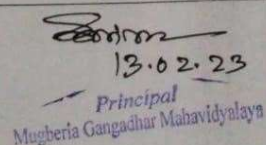 13.02.23
Principal
Mugberia Gangadhar Mahavidyalaya